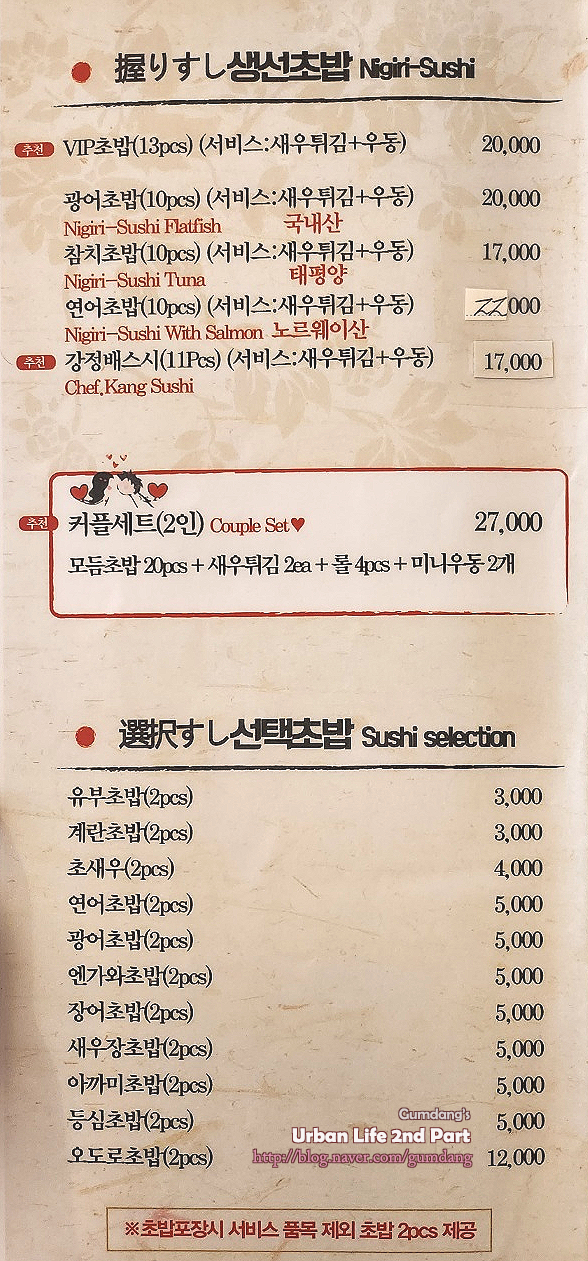 握りすし생선초밥 Nigiri-Sushi
추천 VIP초밥(13pcs) (서비스:새우튀김+우동) 20,000
광어초밥(10pcs) (서비스:새우튀김+우동) 20,000
Nigiri-Sushi Flatfish 국내산
참치초밥(10pcs) (서비스:새우튀김+우동) 17,000
Nigiri-Sushi Tuna 태평양
연어초밥(10pcs) (서비스:새우튀김+우동) 22,000
Nigiri-Sushi With Salmon 노르웨이산
추천 강정배스시(11Pcs) (서비스:새우튀김+우동) 17,000
Chef.Kang Sushi
추천 커플세트(2인) Couple Set♥ 27,000
모듬초밥 20pcs + 새우튀김 2ea + 롤 4pcs + 미니우동 2개
選択すし선택초밥 Sushi selection
유부초밥(2pcs) 3,000
계란초밥(2pcs) 3,000
초새우(2pcs) 4,000
연어초밥(2pcs) 5,000
광어초밥(2pcs) 5,000
엔가와초밥(2pcs) 5,000
장어초밥(2pcs) 5,000
새우장초밥(2pcs) 5,000
아까미초밥(2pcs) 5,000
등심초밥(2pcs) 5,000
오도로초밥(2pcs) 12,000
Gumdang's
Urban Life 2nd Part
http://blog.naver.com/gumdang
※초밥포장시 서비스 품목 제외 초밥 2pcs 제공